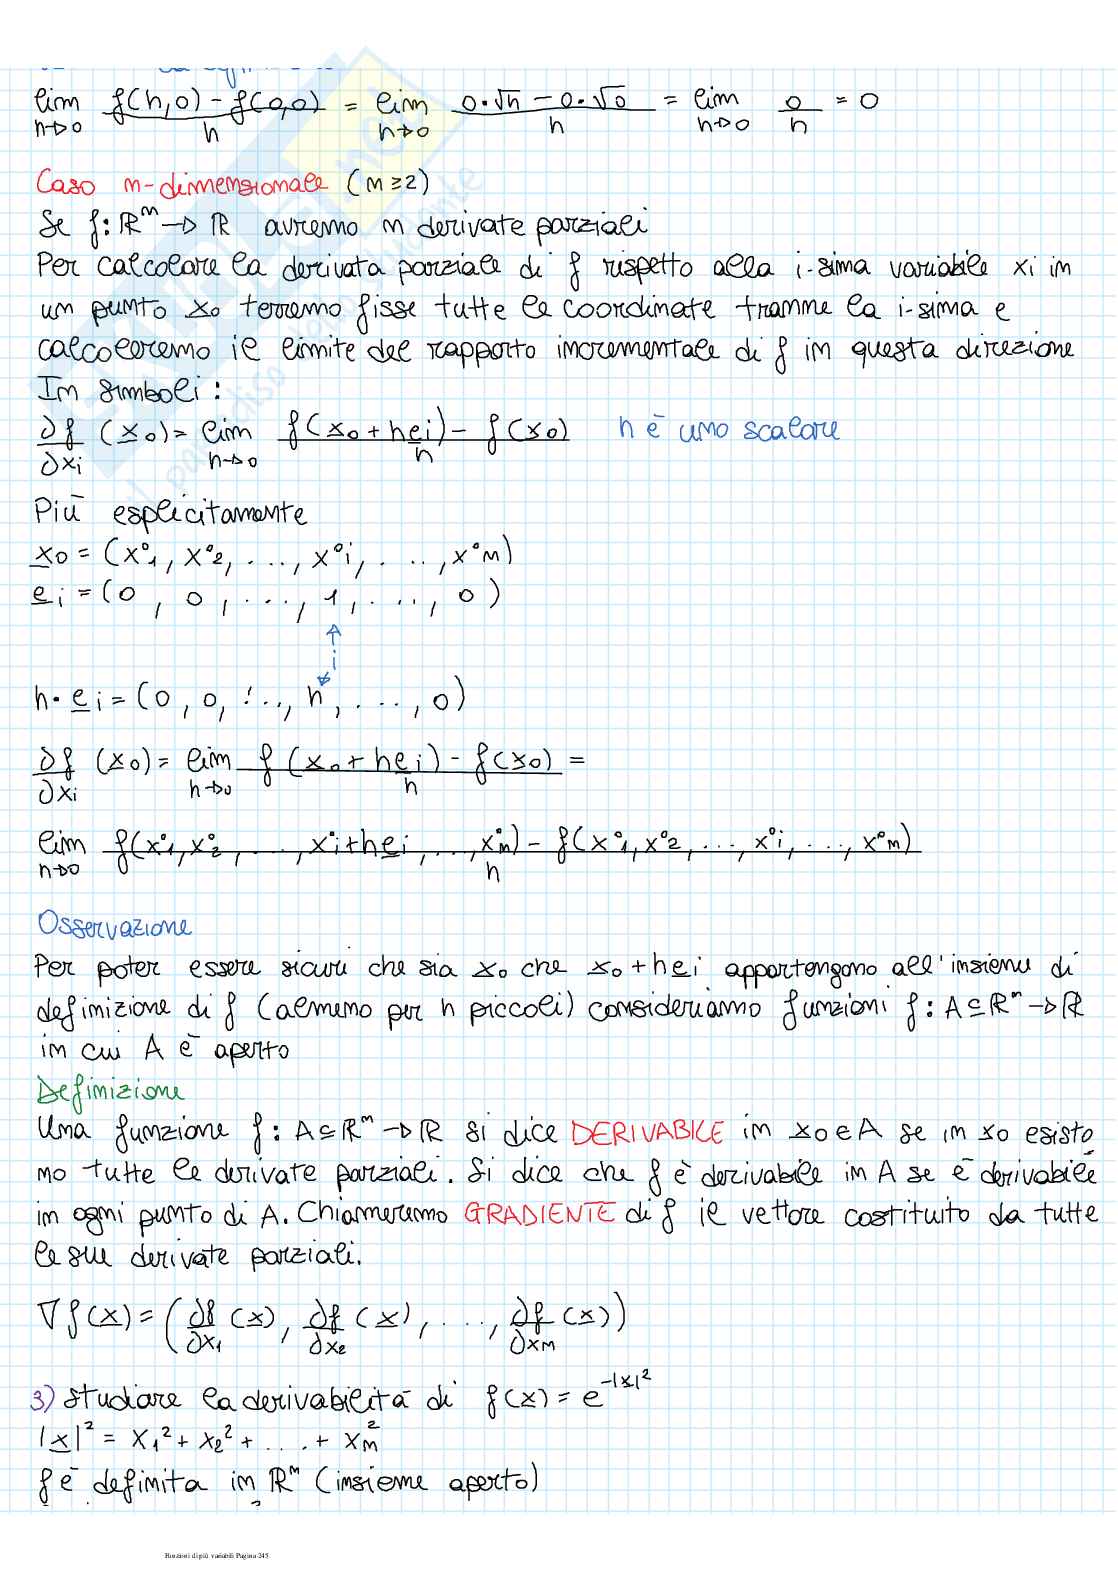 lim f(h,0) - f(0,0) = lim 0·√h - 0·√0 = lim 0 = 0
h→0 h h→0 h h→0 h
Caso n-dimensionale (n≥2)
Se f: ℝⁿ → ℝ avremo n derivate parziali
Per calcolare la derivata parziale di f rispetto alla i-sima variabile xi in
un punto x0 terremo fisse tutte le coordinate tramne la i-sima e
calcoleremo il limite del rapporto incrementale di f in questa direzione
In simboli:
∂f (x0) = lim f(x0+hei) - f(x0) h è uno scalare
∂xi h→0 h
Più esplicitamente
x0 = (x°1, x°2, ..., x°i, ..., x°n)
ei = (0, 0, ..., 1, ..., 0)
i
h·ei = (0, 0, ..., h, ..., 0)
∂f (x0) = lim f(x0+hei) - f(x0) =
∂xi h→0 h
lim f(x°1, x°2, ..., x°i+hei, ..., x°n) - f(x°1, x°2, ..., x°i, ..., x°n)
h→0 h
Osservazione
Per poter essere sicuri che sia x0 che x0+hei appartengono all'insieme di
definizione di f (almeno per h piccoli) consideriamo funzioni f: A⊆ℝⁿ → ℝ
in cui A è aperto
Definizione
Una funzione f: A⊆ℝⁿ → ℝ si dice DERIVABILE in x0∈A se in x0 esisto
no tutte le derivate parziali. Si dice che f è derivabile in A se è derivabile
in ogni punto di A. Chiameremo GRADIENTE di f il vettore costituito da tutte
le sue derivate parziali.
∇f(x) = (∂f (x), ∂f (x), ..., ∂f (x))
∂x1 ∂x2 ∂xn
3) studiare la derivabilità di f(x) = e^-|x|²
|x|² = x1² + x2² + .... + xn²
f è definita in ℝⁿ (insieme aperto)
Funzioni di più variabili Pagina 245